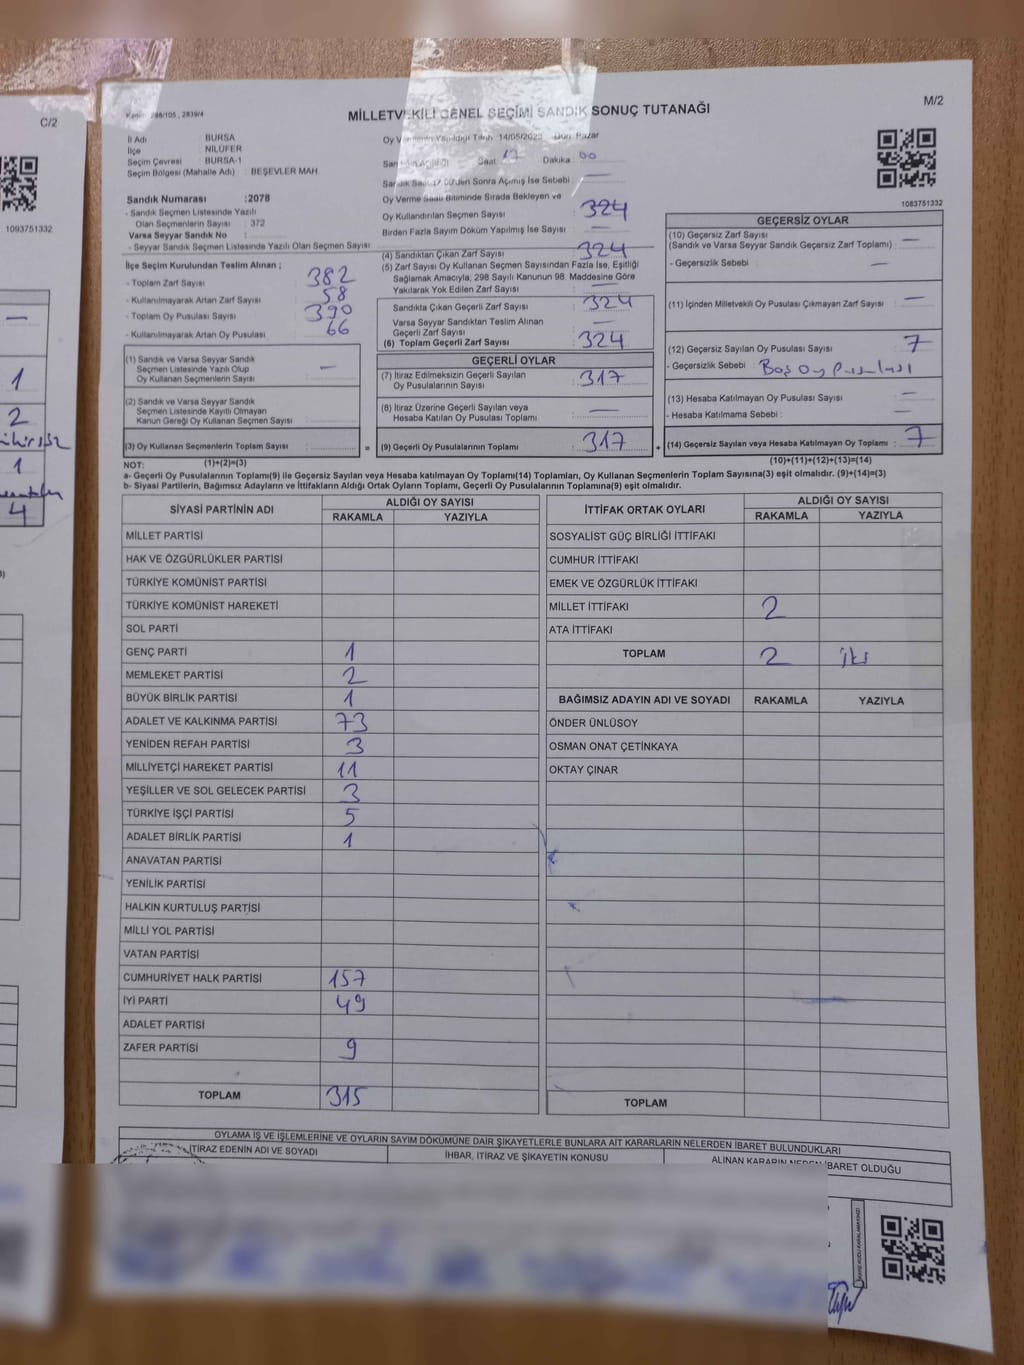 C/2
1093751332
1
2
1
4
MİLLETVEKİLİ GENEL SEÇİMİ SANDIK SONUÇ TUTANAĞI
M/2
1083751332
İl Adı BURSA
İlçe NİLÜFER
Seçim Çevresi : BURSA-1
Seçim Bölgesi (Mahalle Adı) : BEŞEVLER MAH.
Sandık Numarası :2078
- Sandık Seçmen Listesinde Yazılı
Olan Seçmenlerin Sayısı : 372
Varsa Seyyar Sandık No :
- Seyyar Sandık Seçmen Listesinde Yazılı Olan Seçmen Sayısı
İlçe Seçim Kurulundan Teslim Alınan ;
- Toplam Zarf Sayısı : 382
- Kullanılmayarak Artan Zarf Sayısı : 58
- Toplam Oy Pusulası Sayısı : 390
- Kullanılmayarak Artan Oy Pusulası : 66
(1) Sandık ve Varsa Seyyar Sandık
Seçmen Listesinde Yazılı Olup
Oy Kullanan Seçmenlerin Sayısı : —
(2) Sandık ve Varsa Seyyar Sandık
Seçmen Listesinde Kayıtlı Olmayan
Kanun Gereği Oy Kullanan Seçmen Sayısı :
(3) Oy Kullanan Seçmenlerin Toplam Sayısı :
(1)+(2)=(3)
Oy Vermenin Yapıldığı Tarih 14/05/2023 Gün Pazar
Saat 17 Dakika 00
Sandık Saat 17.00'den Sonra Açılmış İse Sebebi : —
Oy Verme Saati Bitiminde Sırada Bekleyen ve
Oy Kullandırılan Seçmen Sayısı : 324
Birden Fazla Sayım Döküm Yapılmış İse Sayısı : —
(4) Sandıktan Çıkan Zarf Sayısı : 324
(5) Zarf Sayısı Oy Kullanan Seçmen Sayısından Fazla İse, Eşitliği
Sağlamak Amacıyla; 298 Sayılı Kanunun 98. Maddesine Göre
Yakılarak Yok Edilen Zarf Sayısı : —
Sandıkta Çıkan Geçerli Zarf Sayısı : 324
Varsa Seyyar Sandıktan Teslim Alınan
Geçerli Zarf Sayısı : —
(6) Toplam Geçerli Zarf Sayısı : 324
GEÇERLİ OYLAR
(7) İtiraz Edilmeksizin Geçerli Sayılan
Oy Pusulalarının Sayısı : 317
(8) İtiraz Üzerine Geçerli Sayılan veya
Hesaba Katılan Oy Pusulası Toplamı : —
= (9) Geçerli Oy Pusulalarının Toplamı : 317
GEÇERSİZ OYLAR
(10) Geçersiz Zarf Sayısı
(Sandık ve Varsa Seyyar Sandık Geçersiz Zarf Toplamı) : —
- Geçersizlik Sebebi : —
(11) İçinden Milletvekili Oy Pusulası Çıkmayan Zarf Sayısı : —
(12) Geçersiz Sayılan Oy Pusulası Sayısı : 7
- Geçersizlik Sebebi : Boş Oy Pusulası
(13) Hesaba Katılmayan Oy Pusulası Sayısı : —
- Hesaba Katılmama Sebebi :
+ (14) Geçersiz Sayılan veya Hesaba Katılmayan Oy Toplamı : 7
(10)+(11)+(12)+(13)=(14)
NOT:
a- Geçerli Oy Pusulalarının Toplamı(9) ile Geçersiz Sayılan veya Hesaba katılmayan Oy Toplamı(14) Toplamları, Oy Kullanan Seçmenlerin Toplam Sayısına(3) eşit olmalıdır. (9)+(14)=(3)
b- Siyasi Partilerin, Bağımsız Adayların ve İttifakların Aldığı Ortak Oyların Toplamı, Geçerli Oy Pusulalarının Toplamına(9) eşit olmalıdır.
SİYASİ PARTİNİN ADI ALDIĞI OY SAYISI
RAKAMLA YAZIYLA
MİLLET PARTİSİ
HAK VE ÖZGÜRLÜKLER PARTİSİ
TÜRKİYE KOMÜNİST PARTİSİ
TÜRKİYE KOMÜNİST HAREKETİ
SOL PARTİ
GENÇ PARTİ 1
MEMLEKET PARTİSİ 2
BÜYÜK BİRLİK PARTİSİ 1
ADALET VE KALKINMA PARTİSİ 73
YENİDEN REFAH PARTİSİ 3
MİLLİYETÇİ HAREKET PARTİSİ 11
YEŞİLLER VE SOL GELECEK PARTİSİ 3
TÜRKİYE İŞÇİ PARTİSİ 5
ADALET BİRLİK PARTİSİ 1
ANAVATAN PARTİSİ
YENİLİK PARTİSİ
HALKIN KURTULUŞ PARTİSİ
MİLLİ YOL PARTİSİ
VATAN PARTİSİ
CUMHURİYET HALK PARTİSİ 157
İYİ PARTİ 49
ADALET PARTİSİ
ZAFER PARTİSİ 9
TOPLAM 315
İTTİFAK ORTAK OYLARI ALDIĞI OY SAYISI
RAKAMLA YAZIYLA
SOSYALİST GÜÇ BİRLİĞİ İTTİFAKI
CUMHUR İTTİFAKI
EMEK VE ÖZGÜRLÜK İTTİFAKI
MİLLET İTTİFAKI 2
ATA İTTİFAKI
TOPLAM 2 iki
BAĞIMSIZ ADAYIN ADI VE SOYADI RAKAMLA YAZIYLA
ÖNDER ÜNLÜSOY
OSMAN ONAT ÇETİNKAYA
OKTAY ÇINAR
TOPLAM
OYLAMA İŞ VE İŞLEMLERİNE VE OYLARIN SAYIM DÖKÜMÜNE DAİR ŞİKAYETLERLE BUNLARA AİT KARARLARIN NELERDEN İBARET BULUNDUKLARI
İTİRAZ EDENİN ADI VE SOYADI İHBAR, İTİRAZ VE ŞİKAYETİN KONUSU ALINAN KARARIN NEDEN İBARET OLDUĞU